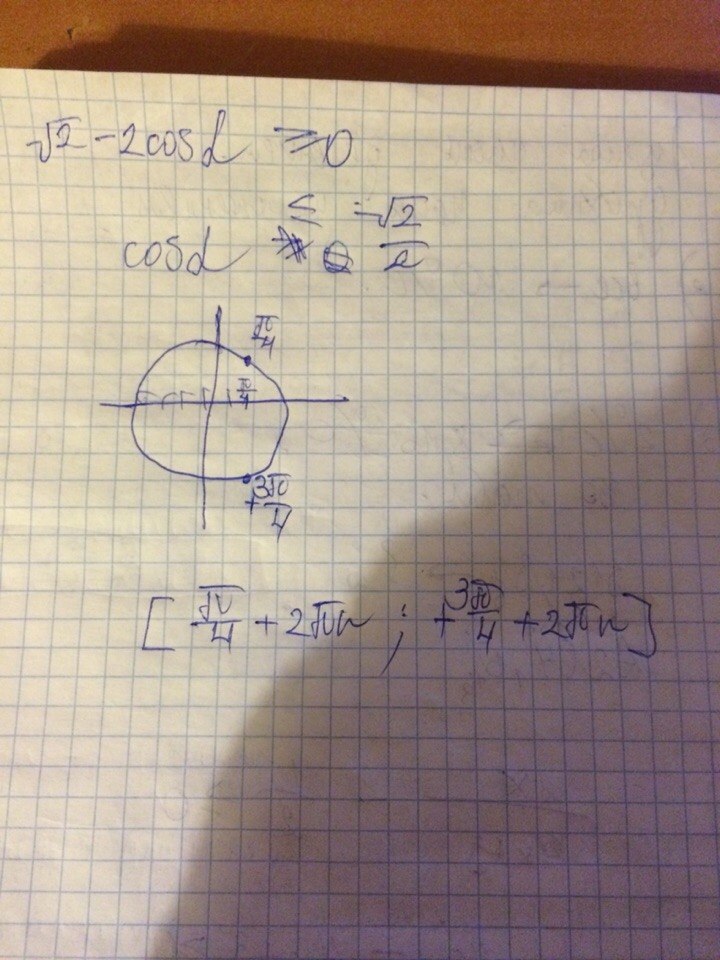 √2 - 2cosα ≥ 0
cosα ≤ √2/2
π/4
π/4
+3π/4
[π/4 + 2πn ; +3π/4 + 2πn]